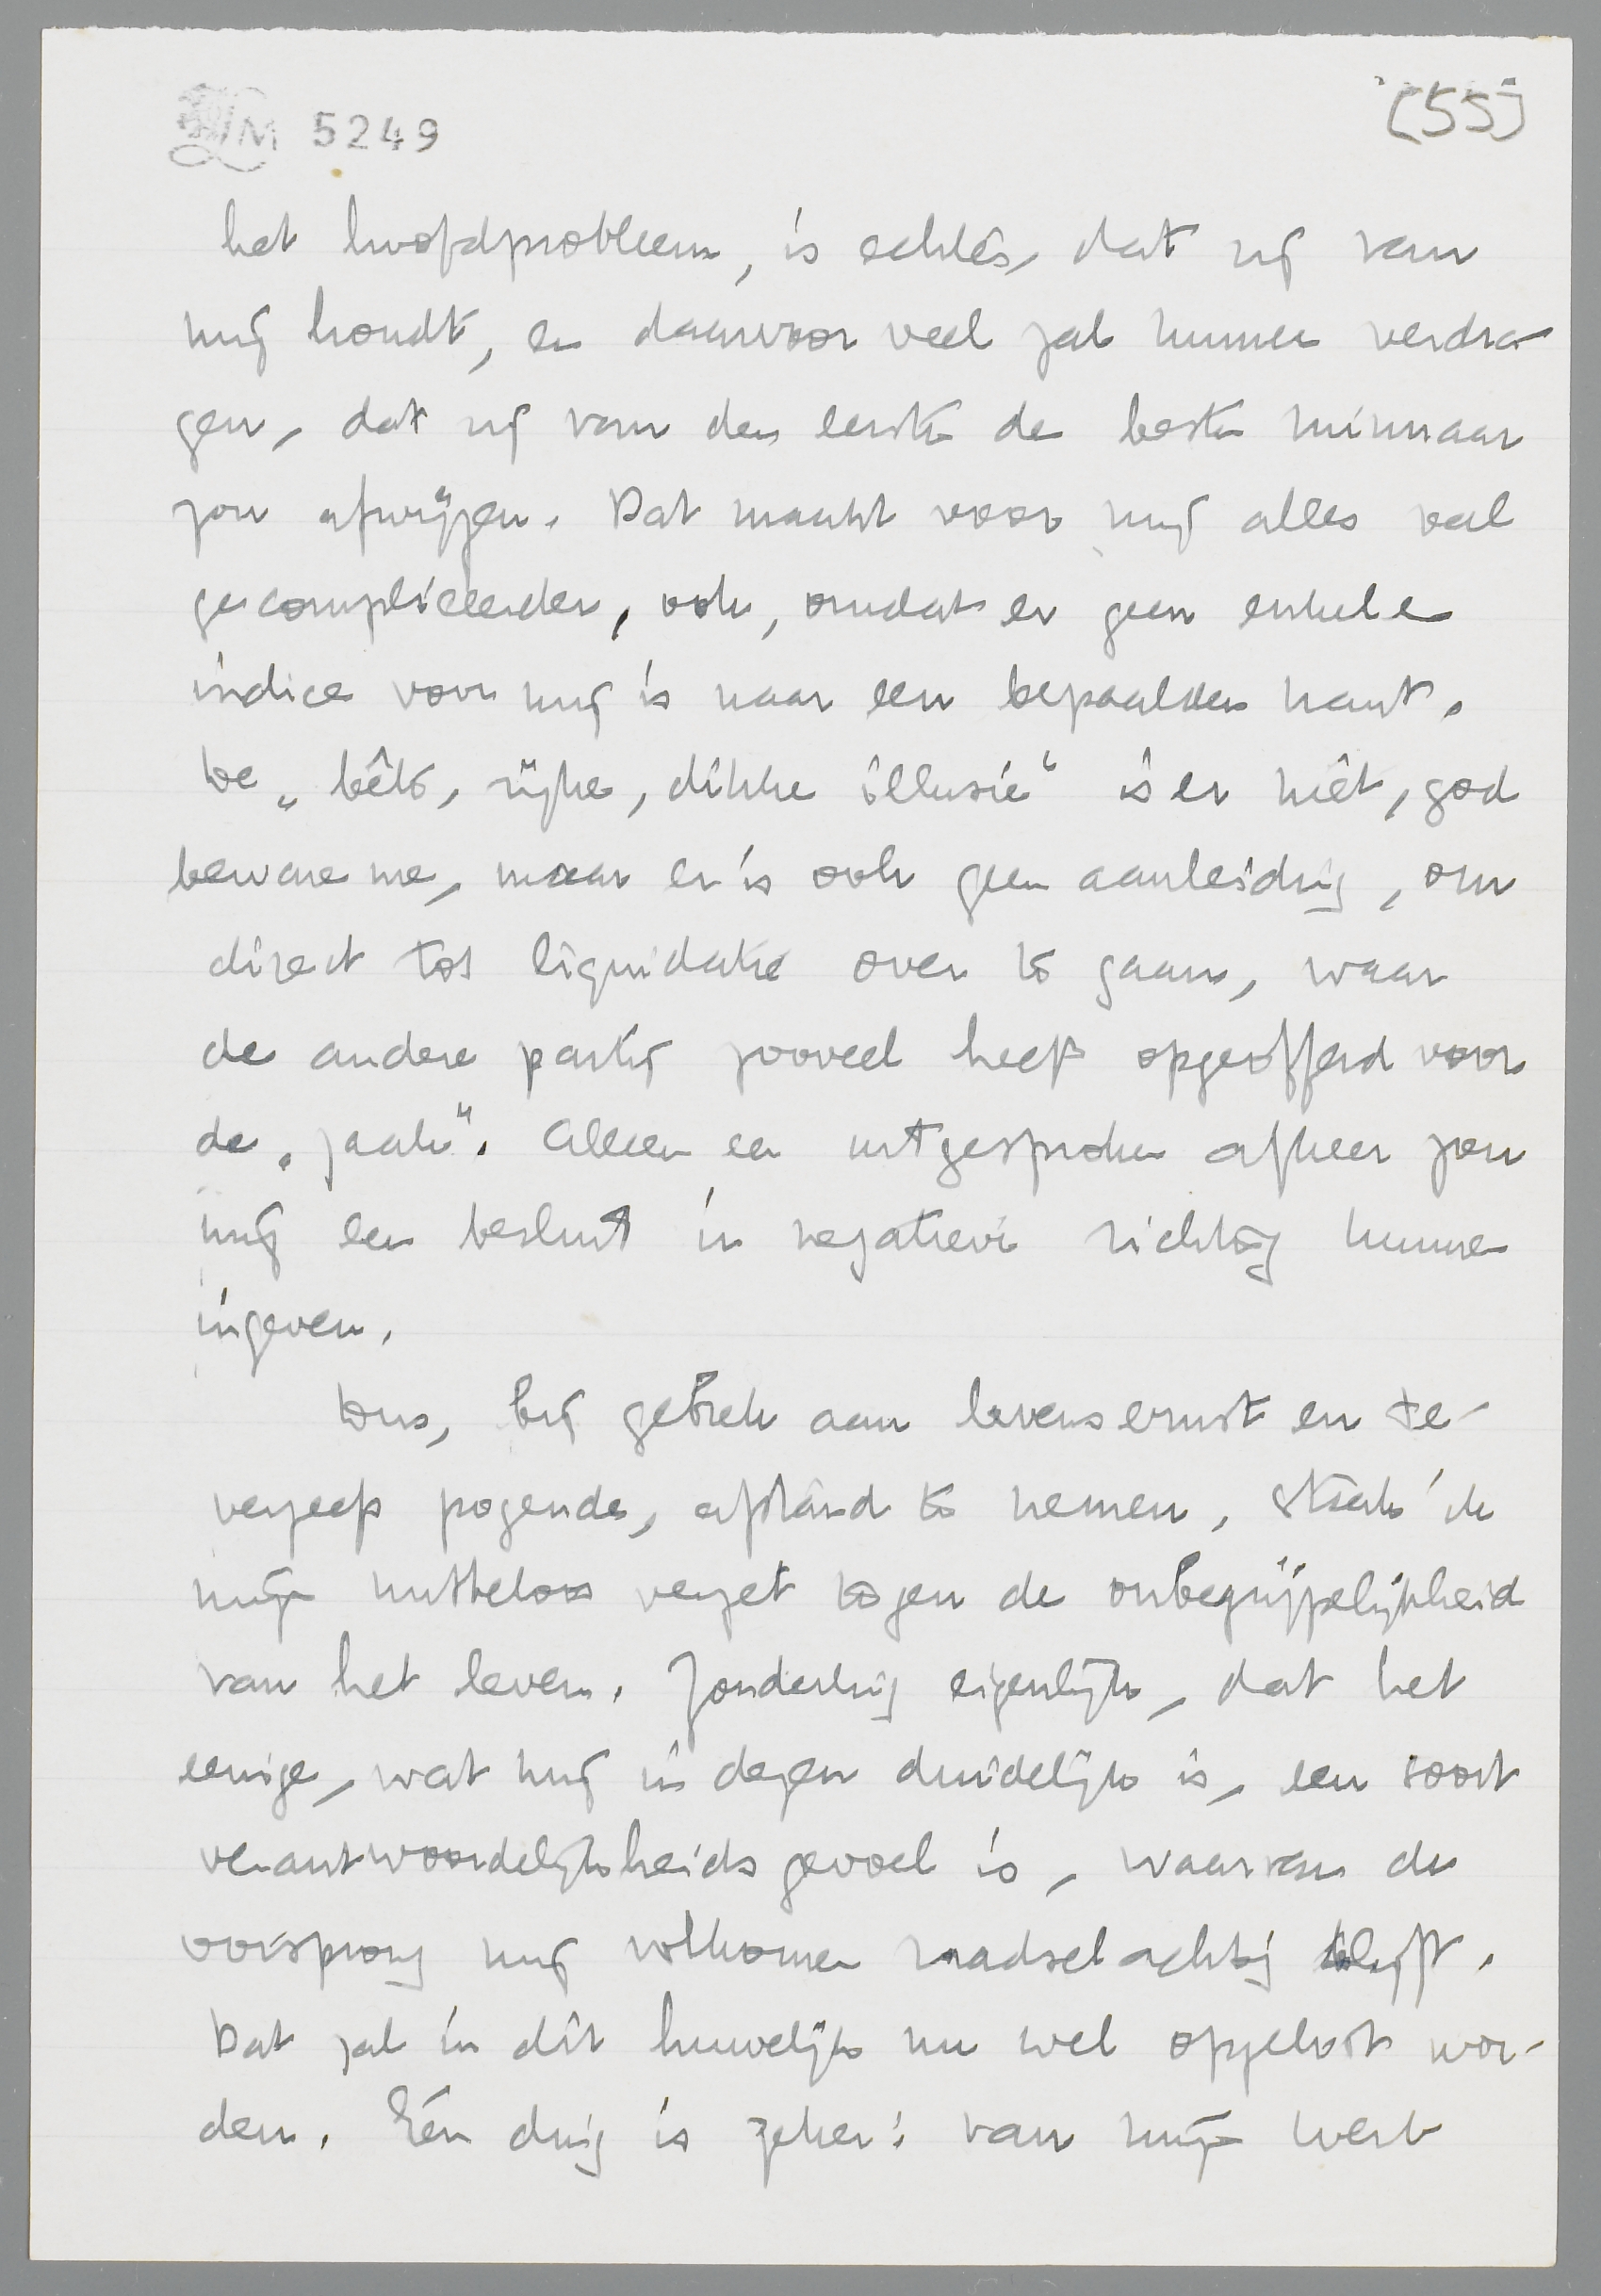 [55]
LM 5249
het hoofdprobleem, is echter, dat zij van
mij houdt, en daarvoor veel zal kunnen verdra-
gen, dat zij van den eersten de besten minnaar
zou afwijzen. Dat maakt voor mij alles veel
gecompliceerder, ook, omdat er geen enkele
indice voor mij is naar een bepaalden kant.
De „bête, rijke, dikke illusie“ is er niet, god
beware me, maar er is ook geen aanleiding, om
direct tot liquidatie over te gaan, waar
de andere partij zooveel heeft opgeofferd voor
de „zaak“. Alleen een uitgesproken afkeer zou
mij een besluit in negatieve richting kunnen
ingeven.
Dus, bij gebrek aan levensernst en te-
vergeefs pogende, afstand te nemen, staak ik
mijn nutteloos verzet tegen de onbegrijpelijkheid
van het leven. Zonderling eigenlijk, dat het
eenige, wat mij in dezen duidelijk is, een soort
verantwoordelijkheidsgevoel is, waarvan de
oorsprong mij volkomen raadselachtig blijft.
Dat zal in dit huwelijk nu wel opgelost wor-
den. Eén ding is zeker: van mijn werk